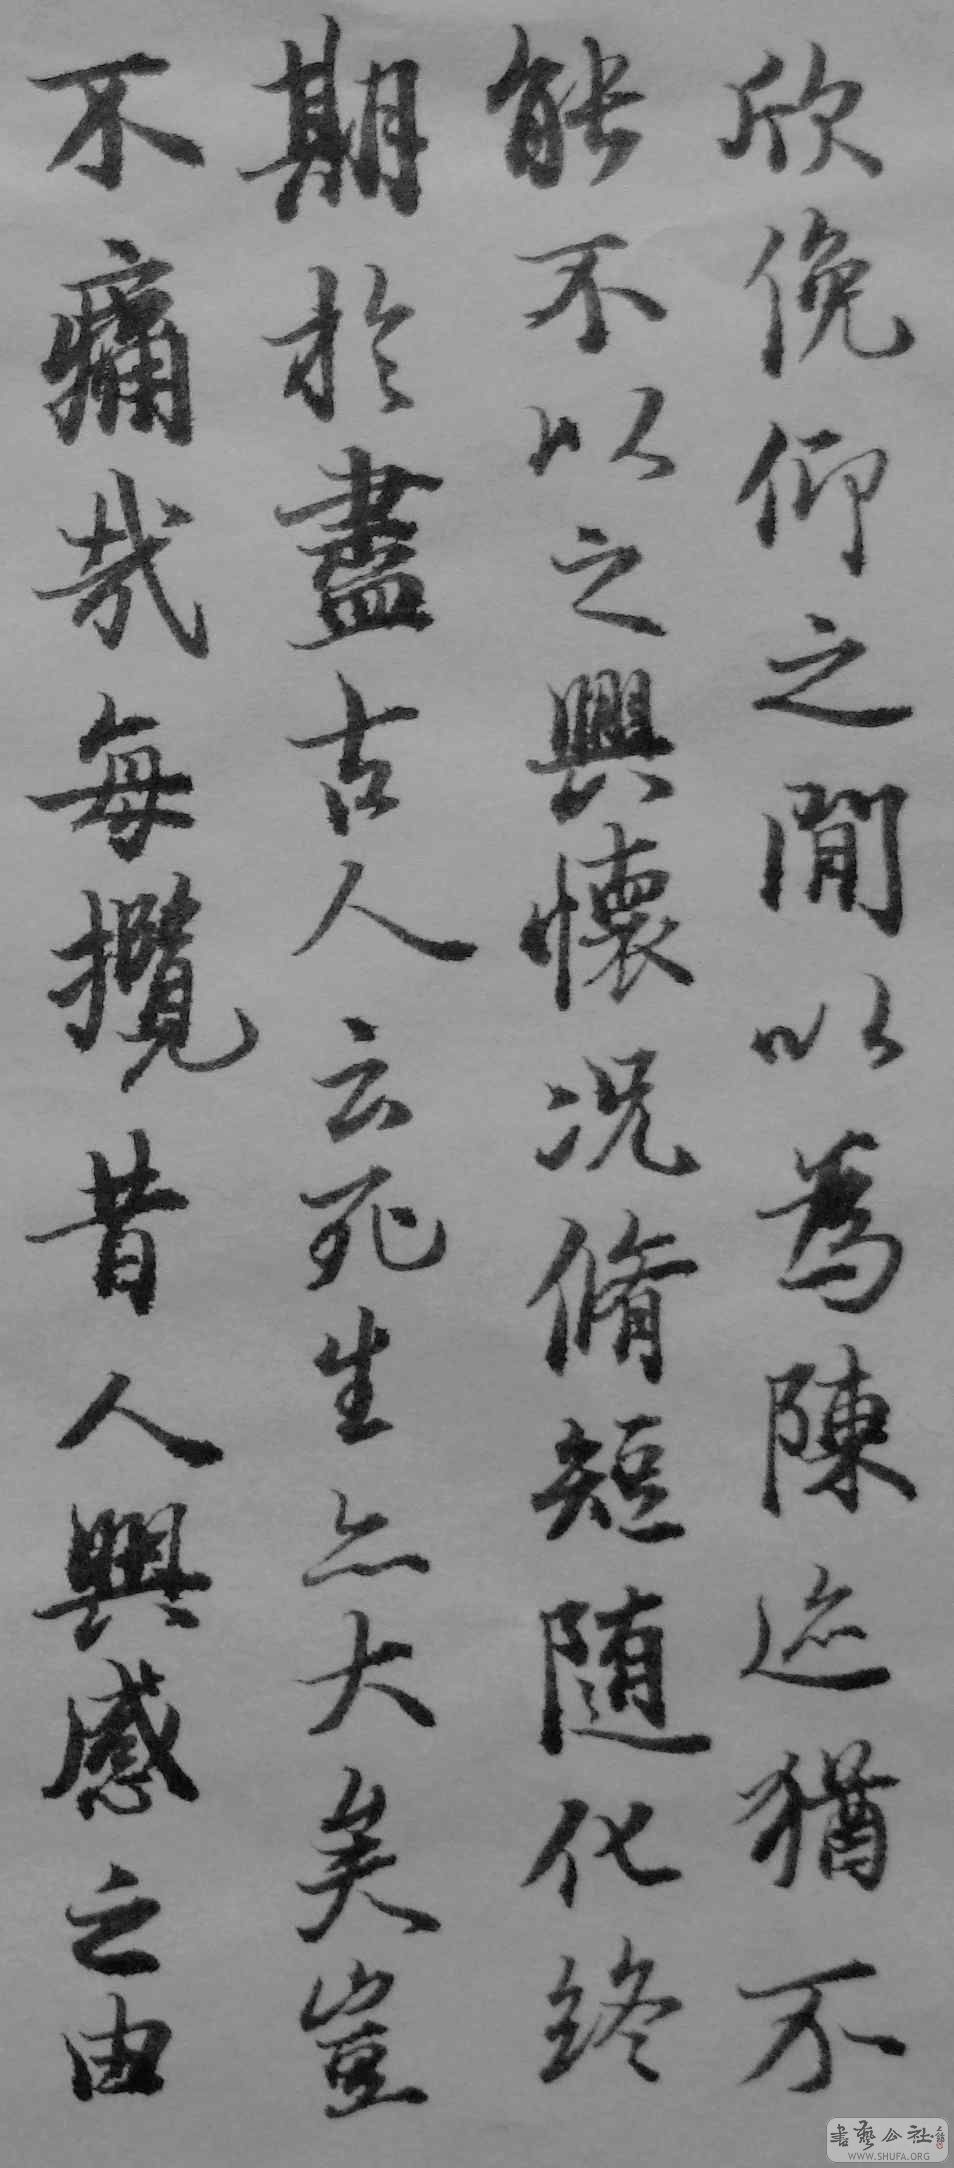 欣俛仰之閒以為陳迹猶不
能不以之興懷况脩短随化終
期於盡古人云死生亦大矣豈
不痛哉每攬昔人興感之由
書藝公社
WWW.SHUFA.ORG